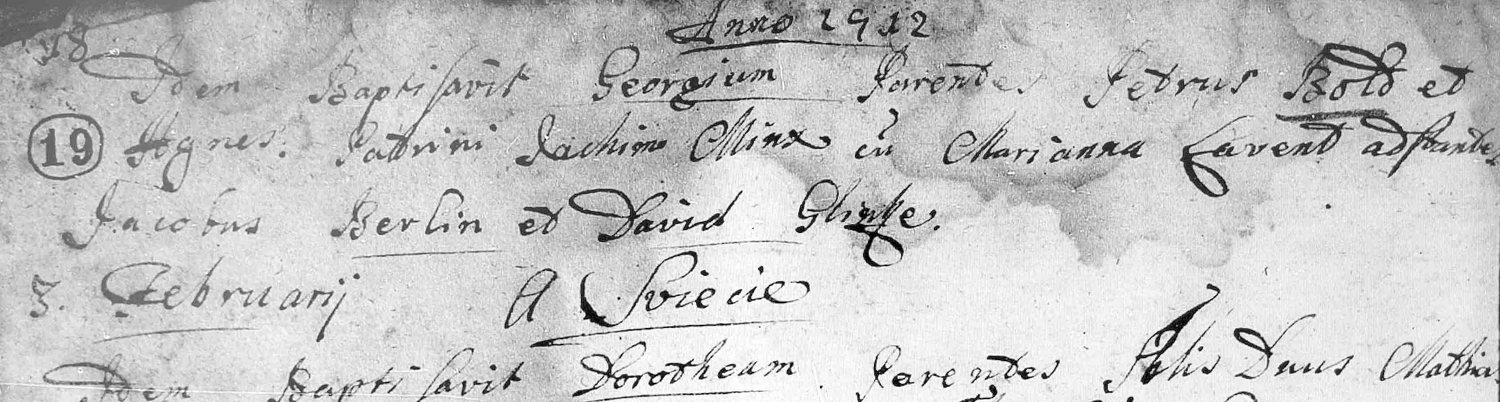 Anno 1712
18
Idem Baptisavit Georgium Parentes Petrus Bold et
19 Agnes. Patrini Jachim Minx cũ Marianna Lavent adstantes
Jacobus Berlin et David Glinke.
3. Februarij A Sviecie
Idem Baptisavit Dorotheam Parentes Dnus Mathia